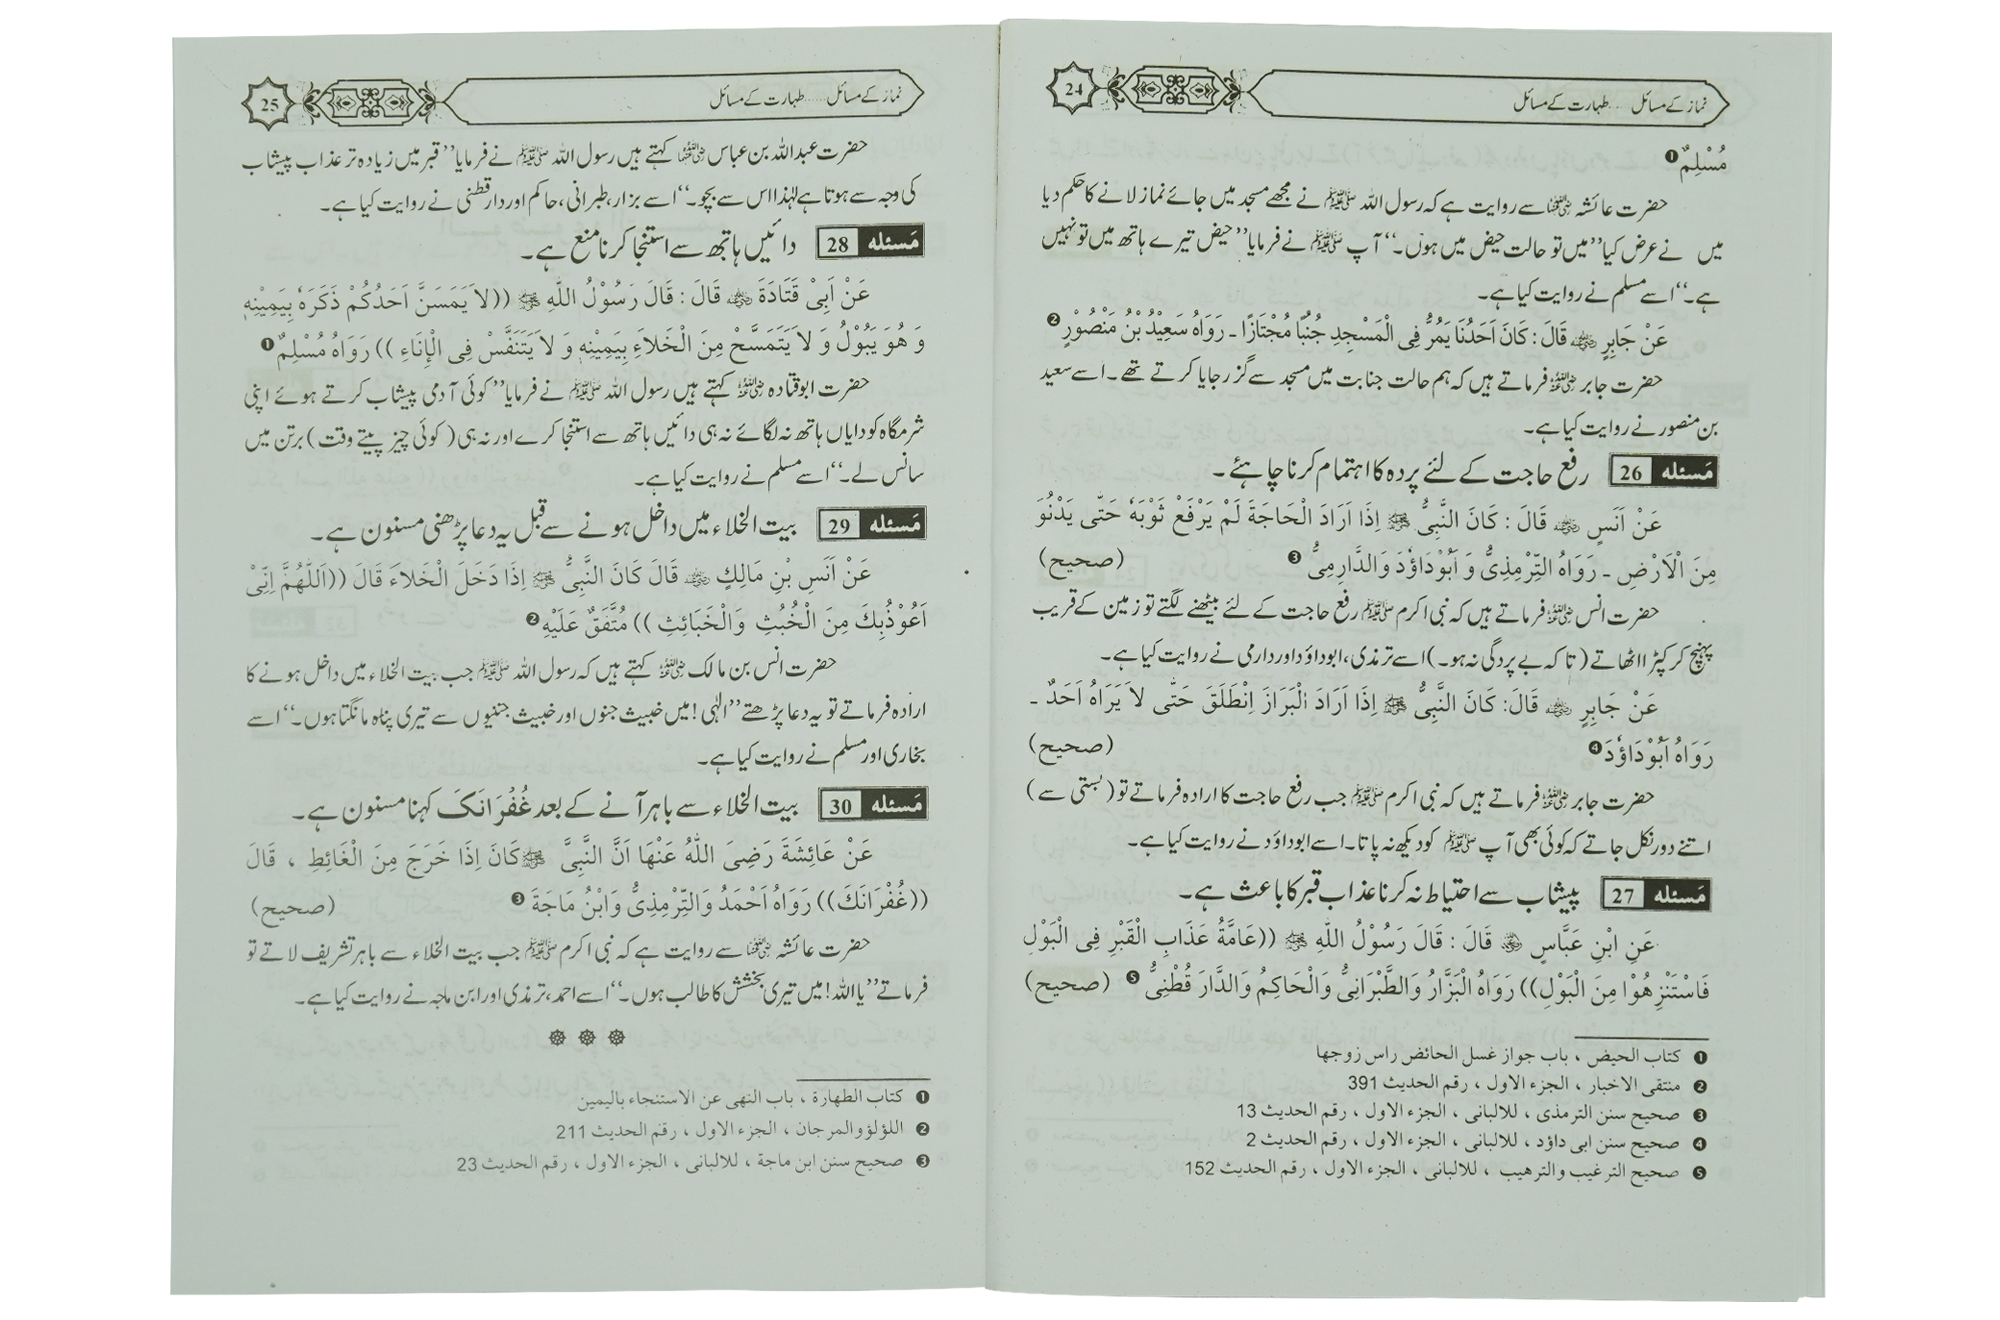 24
نماز کے مسائل ..... طہارت کے مسائل
مُسْلِمٌ ❶
حضرت عائشہ رضی اللہ عنہا سے روایت ہے کہ رسول اللہ ﷺ نے مجھے مسجد میں جائے نماز لانے کا حکم دیا
میں نے عرض کیا’’میں تو حالت حیض میں ہوں۔‘‘ آپ ﷺ نے فرمایا’’حیض تیرے ہاتھ میں تو نہیں
ہے۔‘‘ اسے مسلم نے روایت کیا ہے۔
عَنْ جَابِرٍ ؓ قَالَ : كَانَ اَحَدُنَا يَمُرُّ فِى الْمَسْجِدِ جُنُبًا مُجْتَازًا ـ رَوَاهُ سَعِيْدُ بْنُ مَنْصُوْرٍ ❷
حضرت جابر ؓ فرماتے ہیں کہ ہم حالت جنابت میں مسجد سے گزر جایا کرتے تھے۔ اسے سعید
بن منصور نے روایت کیا ہے۔
مَسئله 26 رفع حاجت کے لئے پردہ کا اہتمام کرنا چاہئے۔
عَنْ اَنَسٍ ؓ قَالَ : كَانَ النَّبِىُّ ﷺ اِذَا اَرَادَ الْحَاجَةَ لَمْ يَرْفَعْ ثَوْبَهٗ حَتّٰى يَدْنُوَ
مِنَ الْاَرْضِ ـ رَوَاهُ التِّرْمِذِىُّ وَ اَبُوْدَاؤدَ وَالدَّارِمِىُّ ❸ (صحيح)
حضرت انس ؓ فرماتے ہیں کہ نبی اکرم ﷺ رفع حاجت کے لئے بیٹھنے لگتے تو زمین کے قریب
پہنچ کر کپڑا اٹھاتے (تا کہ بے پردگی نہ ہو۔) اسے ترمذی، ابوداؤد اور دارمی نے روایت کیا ہے۔
عَنْ جَابِرٍ ؓ قَالَ: كَانَ النَّبِىُّ ﷺ اِذَا اَرَادَ الْبَرَازَ اِنْطَلَقَ حَتّٰى لاَ يَرَاهُ اَحَدٌ ـ
رَوَاهُ اَبُوْدَاؤدَ ❹ (صحيح)
حضرت جابر ؓ فرماتے ہیں کہ نبی اکرم ﷺ جب رفع حاجت کا ارادہ فرماتے تو (بستی سے)
اتنے دور نکل جاتے کہ کوئی بھی آپ ﷺ کو دیکھ نہ پاتا۔ اسے ابوداؤد نے روایت کیا ہے۔
مَسئله 27 پیشاب سے احتیاط نہ کرنا عذاب قبر کا باعث ہے۔
عَنِ ابْنِ عَبَّاسٍ ؓ قَالَ : قَالَ رَسُوْلُ اللهِ ﷺ ((عَامَّةُ عَذَابِ الْقَبْرِ فِى الْبَوْلِ
فَاسْتَنْزِهُوْا مِنَ الْبَوْلِ)) رَوَاهُ الْبَزَّارُ وَالطَّبْرَانِىُّ وَالْحَاكِمُ وَالدَّارَ قُطْنِىُّ ❺ (صحيح)
❶ كتاب الحيض ، باب جواز غسل الحائض راس زوجها
❷ منتقى الاخبار ، الجزء الاول ، رقم الحديث 391
❸ صحيح سنن الترمذى ، للالبانى ، الجزء الاول ، رقم الحديث 13
❹ صحيح سنن ابى داؤد ، للالبانى ، الجزء الاول ، رقم الحديث 2
❺ صحيح الترغيب والترهيب ، للالبانى ، الجزء الاول ، رقم الحديث 152
25
نماز کے مسائل ..... طہارت کے مسائل
حضرت عبداللہ بن عباس ؓ کہتے ہیں رسول اللہ ﷺ نے فرمایا’’قبر میں زیادہ تر عذاب پیشاب
کی وجہ سے ہوتا ہے لہٰذا اس سے بچو۔‘‘ اسے بزار، طبرانی، حاکم اور دارقطنی نے روایت کیا ہے۔
مَسئله 28 دائیں ہاتھ سے استنجا کرنا منع ہے۔
عَنْ اَبِىْ قَتَادَةَ ؓ قَالَ : قَالَ رَسُوْلُ اللّٰهِ ﷺ ((لاَ يَمَسَنَّ اَحَدُكُمْ ذَكَرَهٗ بِيَمِيْنِهٖ
وَ هُوَ يَبُوْلُ وَ لاَ يَتَمَسَّحْ مِنَ الْخَلاَءِ بِيَمِيْنِهٖ وَ لاَ يَتَنَفَّسْ فِى الْاِنَاءِ )) رَوَاهُ مُسْلِمٌ ❶
حضرت ابوقتادہ ؓ کہتے ہیں رسول اللہ ﷺ نے فرمایا’’کوئی آدمی پیشاب کرتے ہوئے اپنی
شرمگاہ کو دایاں ہاتھ نہ لگائے نہ ہی دائیں ہاتھ سے استنجا کرے اور نہ ہی (کوئی چیز پیتے وقت) برتن میں
سانس لے۔‘‘ اسے مسلم نے روایت کیا ہے۔
مَسئله 29 بیت الخلاء میں داخل ہونے سے قبل یہ دعا پڑھنی مسنون ہے۔
عَنْ اَنَسِ بْنِ مَالِكٍ ؓ قَالَ كَانَ النَّبِىُّ ﷺ اِذَا دَخَلَ الْخَلاَءَ قَالَ ((اَللّٰهُمَّ اِنِّىْ
اَعُوْذُبِكَ مِنَ الْخُبُثِ وَالْخَبَائِثِ )) مُتَّفَقٌ عَلَيْهِ ❷
حضرت انس بن مالک ؓ کہتے ہیں کہ رسول اللہ ﷺ جب بیت الخلاء میں داخل ہونے کا
ارادہ فرماتے تو یہ دعا پڑھتے’’الٰہی! میں خبیث جنوں اور خبیث جنیوں سے تیری پناہ مانگتا ہوں۔‘‘ اسے
بخاری اور مسلم نے روایت کیا ہے۔
مَسئله 30 بیت الخلاء سے باہر آنے کے بعد غُفْرَانَکَ کہنا مسنون ہے۔
عَنْ عَائِشَةَ رَضِىَ اللّٰهُ عَنْهَا اَنَّ النَّبِىَّ ﷺ كَانَ اِذَا خَرَجَ مِنَ الْغَائِطِ ، قَالَ
((غُفْرَانَكَ)) رَوَاهُ اَحْمَدُ وَالتِّرْمِذِىُّ وَابْنُ مَاجَةَ ❸ (صحيح)
حضرت عائشہ ؓ سے روایت ہے کہ نبی اکرم ﷺ جب بیت الخلاء سے باہر تشریف لاتے تو
فرماتے’’یا اللہ! میں تیری بخشش کا طالب ہوں۔‘‘ اسے احمد، ترمذی اور ابن ماجہ نے روایت کیا ہے۔
❶ كتاب الطهارة ، باب النهى عن الاستنجاء باليمين
❷ اللؤلؤ والمرجان ، الجزء الاول ، رقم الحديث 211
❸ صحيح سنن ابن ماجة ، للالبانى ، الجزء الاول ، رقم الحديث 23